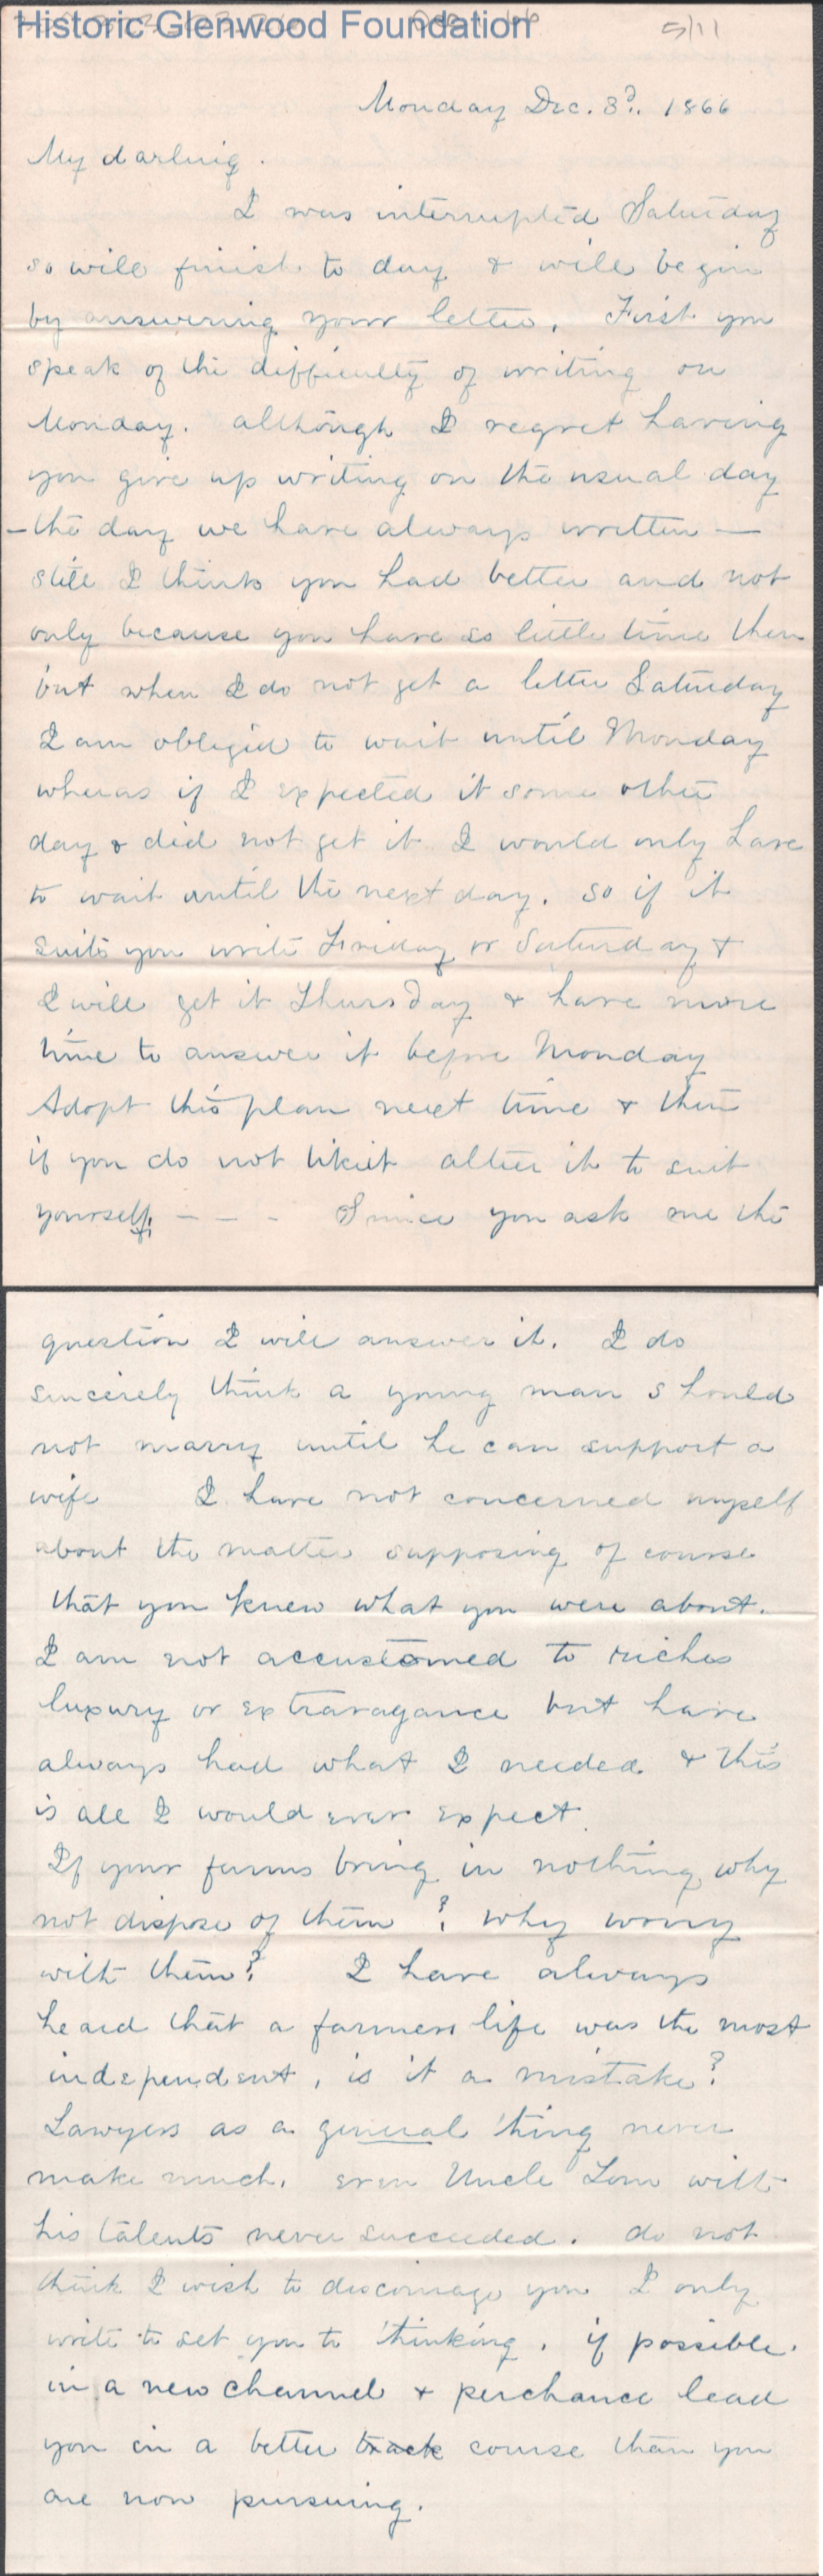 Historic Glenwood Foundation
5/11
Monday Dec. 3d.. 1866
My darling.
I was interrupted Saturday
so will finish to day & will begin
by answering your letter. First you
speak of the difficulty of writing on
Monday. although I regret having
you give up writing on the usual day
– the day we have always written —
still I think you had better and not
only because you have so little time then
but when I do not get a letter Saturday
I am obliged to wait until Monday
wheras if I expected it some other
day & did not get it I would only have
to wait until the next day. so if it
suits you write Friday or Saturday &
I will get it Thursday & have more
time to answer it before Monday
Adopt this plan next time & then
if you do not like it alter it to suit
yourself. - - - Since you ask me the
question I will answer it. I do
sincerely think a young man should
not marry until he can support a
wife I have not concerned myself
about the matter supposing of course
that you knew what you were about.
I am not accustomed to riches
luxury or extravagance but have
always had what I needed & this
is all I would ever expect.
If your farms bring in nothing why
not dispose of them? Why worry
with them? I have always
heard that a farmers life was the most
independent, is it a mistake?
Lawyers as a general thing never
make much. even Uncle Tom with
his talents never succeeded. do not
think I wish to discourage you I only
write to set you to thinking, if possible.
in a new channel & perchance lead
you in a better track course than you
are now pursuing.